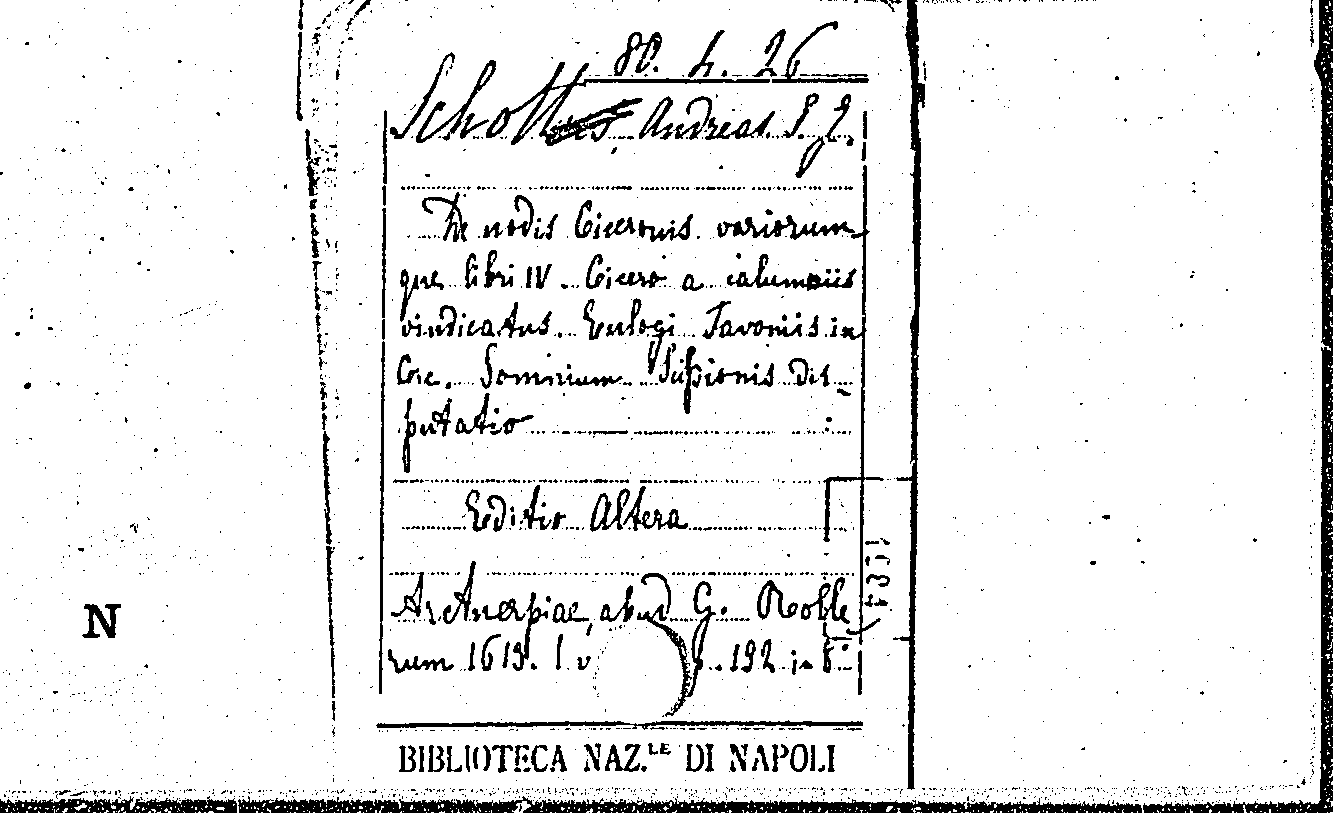 80. 4. 26
Schott, Andreas S. J.
De nodis Ciceronis variorum
que libri IV. Cicero a calumniis
vindicatus. Eulogi Favoniis in
Cic. Somnium Scipionis dis-
putatio
Editio Altera
N
Arctuerpiae, apud G. Wolle
rum 1613. 1 v p. 192 in 8.°
BIBLIOTECA NAZ.LE DI NAPOLI